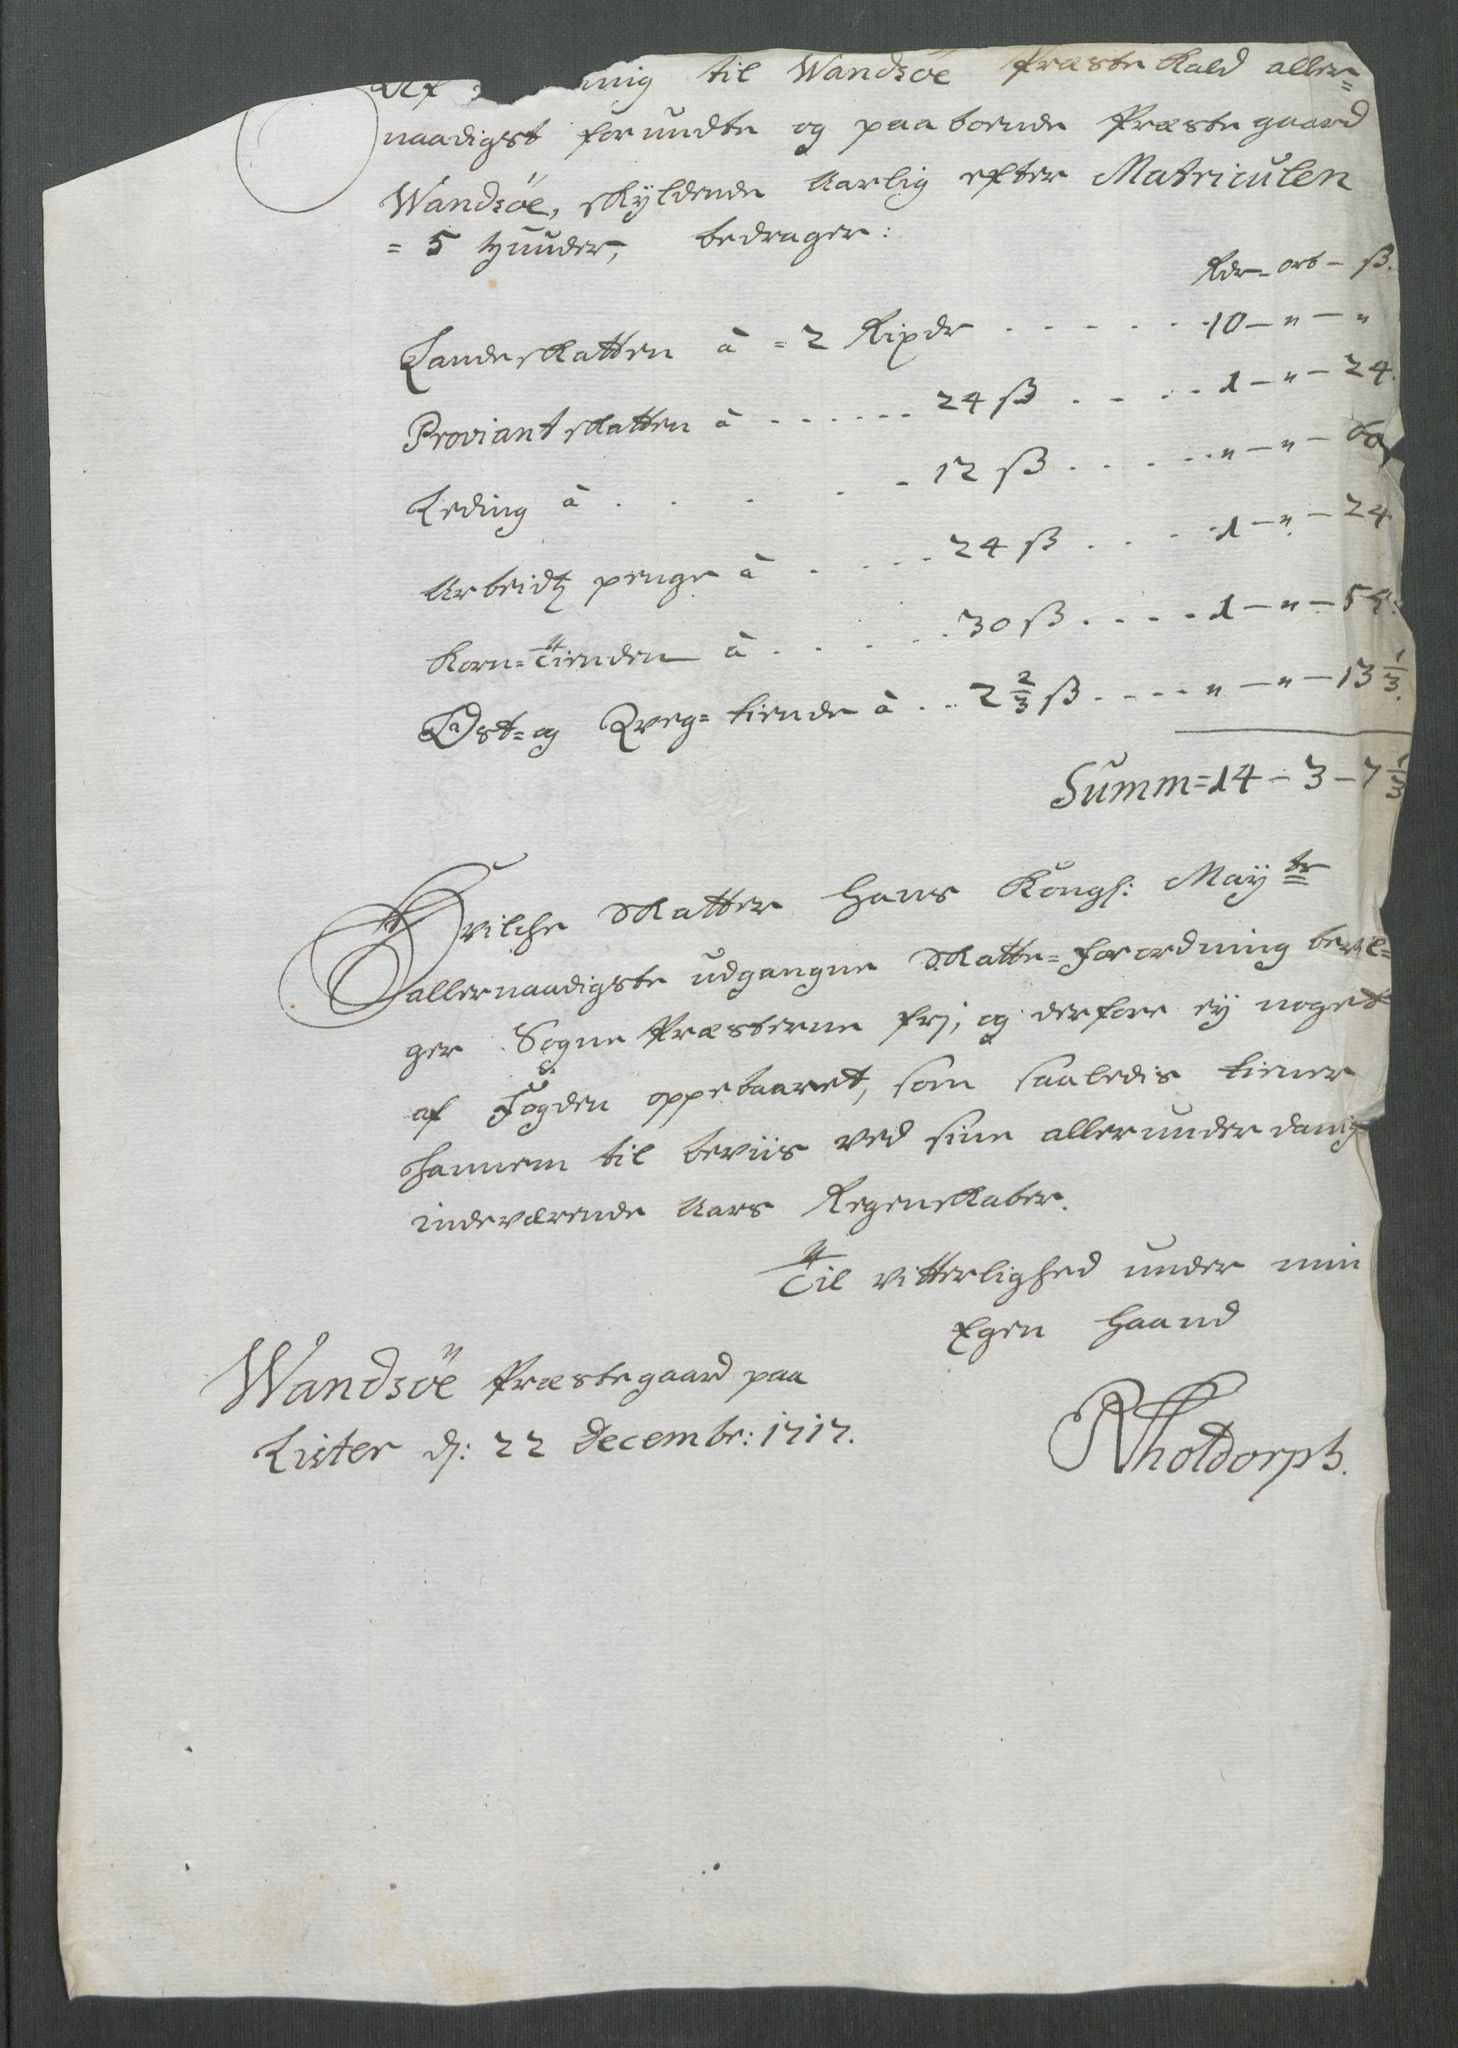 Af mig til Wandsöe Præste Kald aller=
naadigst forundte og paaboende Præstegaard
Wandsöe, skyldende Aarlig efter Matriculen
= 5 huuder, bedrager:
Rdr - ort - ß.
Landskatten à = 2 Rixdr . . . . . . 10 - " - "
Proviantskatten à . . . . . . 24 ß . . . . . 1 - " - 24.
Leding à . . . . . 12 ß . . . . . " - " - 60
Arbeidtz penge à . . . . . 24 ß . . . . 1 - " - 24
Korn=Tienden à . . . . . 30 ß . . . . 1 - " - 54.
Ost= og Qveg=tiende à . . 2 2/3 ß . . . . " - " - 13 1/3.
Summ= 14 - 3 - 7 1/3
Hvilche Skatter Hans Kongl: Mayte
allernaadigste udgangne Skatte=forordning bevil=
ger Sogne Præsterne frj, og derfore ey noget
af Fogden oppebaaret, som saaledis tiener
hannem til beviis ved sine allerunderdanig
indeværende Aars Regenskaber.
Til vitterlighed under min
Egen Haand
Wandsöe Præstegaard paa
Lister d: 22 Decembr: 1717.
RHoldorph.